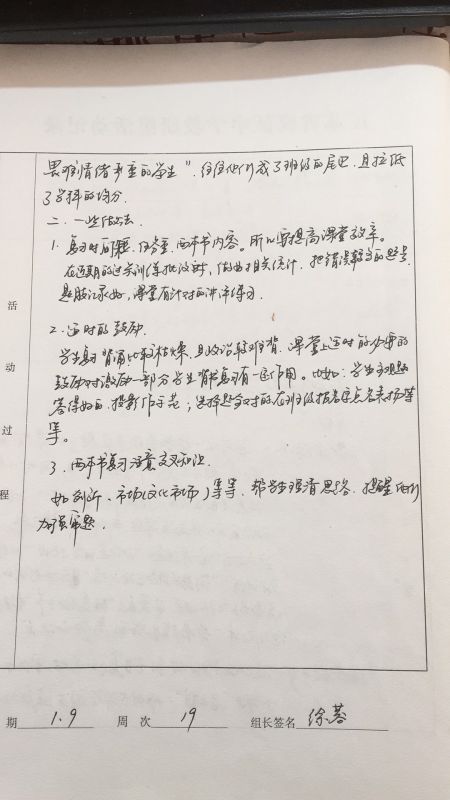 畏难情绪严重的学生"，往往他们成了班级的尾巴，且拉低
了学科的均分。
二、一些做法。
1. 复习时间短，任务重，两本书内容。所以要提高课堂效率。
在近期的过关训练批改时，做好相关统计，把错误较多的题号
题肢记录好，课堂有针对的讲评练习。
2. 适时的鼓励。
学生复习背诵比较枯燥，且政治较难背。课堂上适时的
鼓励对激励一部分学生背书复习有一定作用。比如：学生主观题
答得好的，投影作示范；选择题全对的在班级报名字点名表扬等
等。
3. 两本书复习注意交叉知识。
如创新、市场（文化市场）等等，帮学生理清思路，提醒他们
加强审题。
活
动
过
程
期 1.9 周 次 19 组长签名 徐蓉